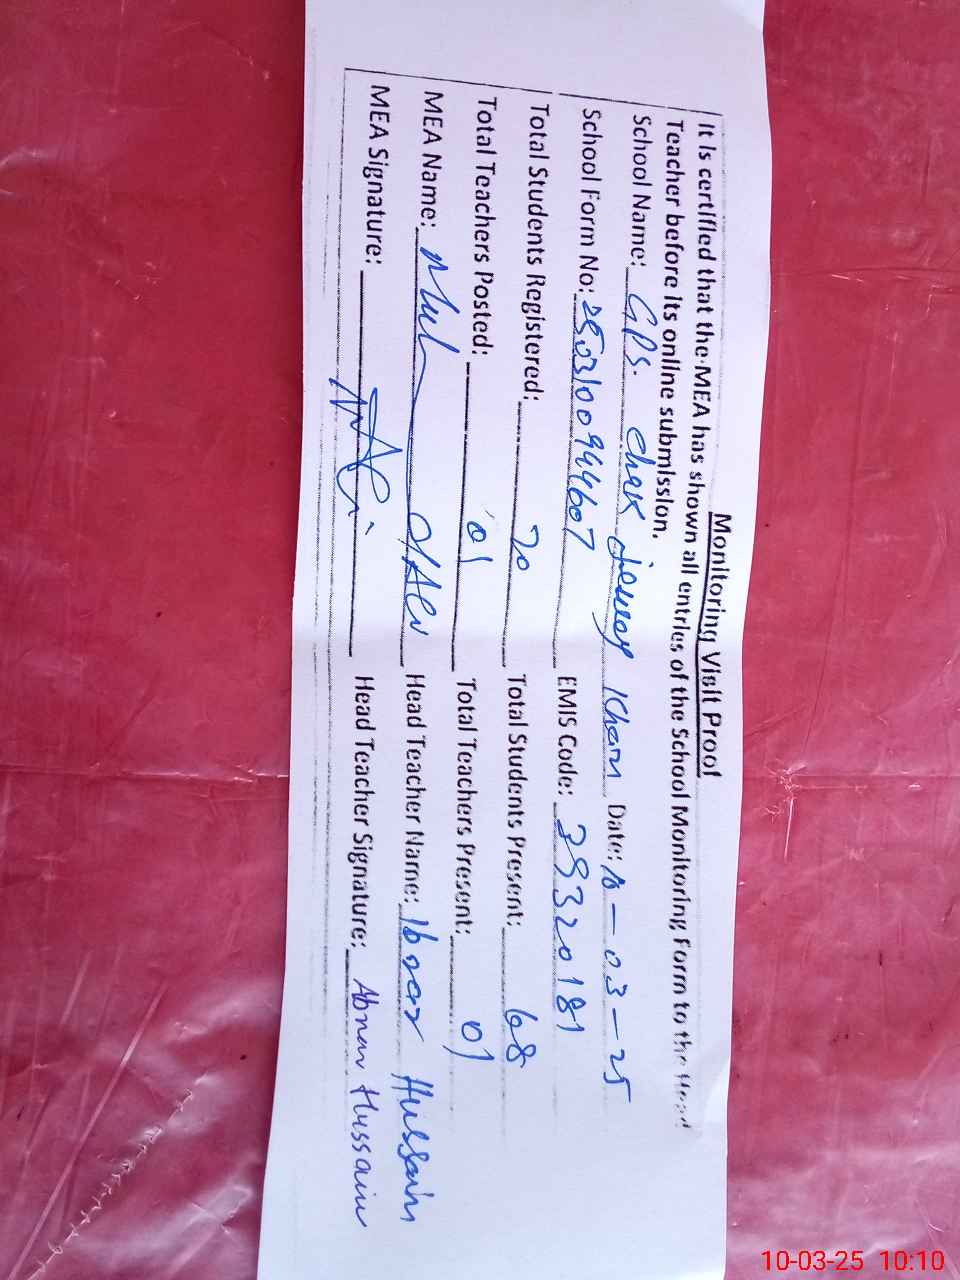 Monitoring Visit Proof
It is certified that the MEA has shown all entries of the School Monitoring Form to the Head
Teacher before its online submission.
School Name: GPS. chak Khan Date: 10-03-25
School Form No: EMIS Code: 39320181
Total Students Registered: 70 Total Students Present: 68
Total Teachers Posted: 01 Total Teachers Present: 01
MEA Name: Head Teacher Name: Hussain
MEA Signature: Head Teacher Signature: Hussain
10-03-25 10:10